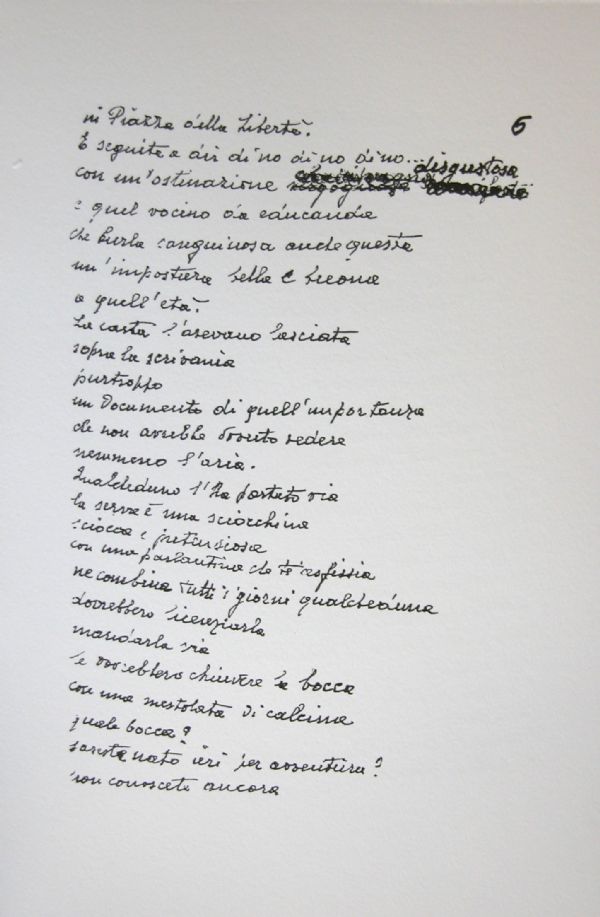 in Piazza della Libertà.
5
E seguite a dir di no di no di no... disgustosa
con un'ostinazione
e quel vocino da educanda
che burla sanguinosa anche questa
un'impostura bella e buona
a quell'età.
La carta l'avevano lasciata
sopra la scrivania
purtroppo
un documento di quell'importanza
che non avrebbe dovuto vedere
nemmeno l'aria.
Qualcheduno l'ha portato via
la serva è una sciocchina
sciocca e pretensiosa
con una parlantina che ti asfissia
ne combina tutti i giorni qualcheduna
dovrebbero licenziarla
mandarla via
le dovrebbero chiudere la bocca
con una mestolata di calcina
quale bocca?
sareste nato ieri per avventura?
non conoscete ancora